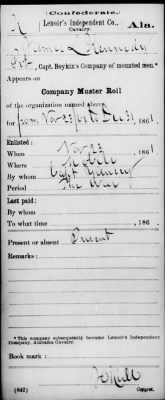 (Confederate.)
Lenoir's Independent Co., Ala.
Cavalry.
James Kennedy
Pvt, Capt. Boykin's Company of mounted men.*
Appears on
Company Muster Roll
of the organization named above,
for from Nov 23/61 to Dec 31, 1861.
Enlisted:
When Nov 23, 1861
Where Mobile
By whom Capt
Period The War
Last paid:
By whom
To what time , 186 .
Present or absent Present
Remarks:
*This company subsequently became Lenoir's Independent
Company, Alabama Cavalry.
Book mark:
(642) Copyist.